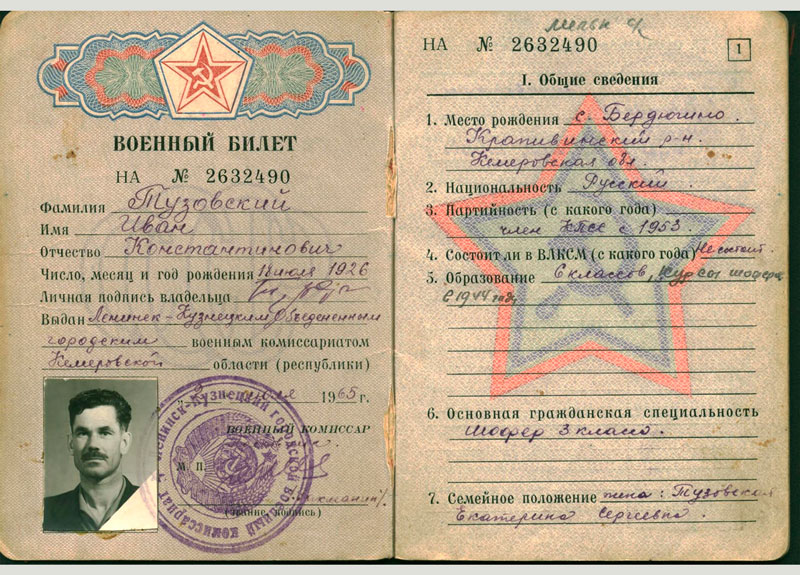 ВОЕННЫЙ БИЛЕТ
НА № 2632490
Фамилия Тузовский
Имя Иван
Отчество Константинович
Число, месяц и год рождения 18 июля 1926
Личная подпись владельца
Выдан Ленинск-Кузнецким Объединенным
городским военным комиссариатом
Кемеровской области (республики)
1965 г.
ВОЕННЫЙ КОМИССАР
М. П.
(звание, подпись)
НА № 2632490
1
I. Общие сведения
1. Место рождения с. Бердюгино.
Крапивинский р-н.
Кемеровская обл.
2. Национальность Русский.
3. Партийность (с какого года)
член КПСС с 1953.
4. Состоит ли в ВЛКСМ (с какого года) Не состоит.
5. Образование 6 классов, курсы шофера
с 1944 года
6. Основная гражданская специальность
Шофер 3 класса.
7. Семейное положение жена: Тузовская
Екатерина Сергеевна.